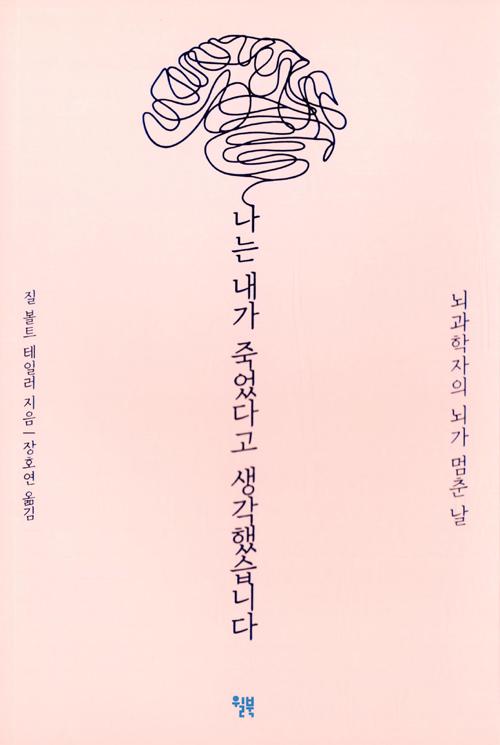 나는 내가 죽었다고 생각했습니다
뇌과학자의 뇌가 멈춘 날
질 볼트 테일러 지음 | 장호연 옮김
윌북